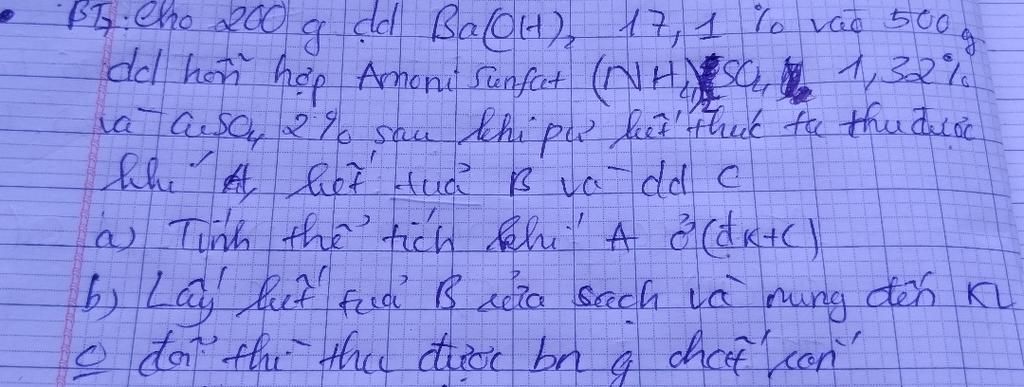 BT5: Cho 200 g dd Ba(OH)2 17,1 % vào 500 g
dd hỗn hợp Amoni Sunfat (NH4)2SO4 1,32%
và CuSO4 2% sau khi pứ kết thúc ta thu được
khí A, kết tuả B và dd C
a) Tính thể tích khí A ở (đktc)
b) Lấy kết tuả B rửa sạch và nung đến KL
đổi thì thu được bn g chất rắn